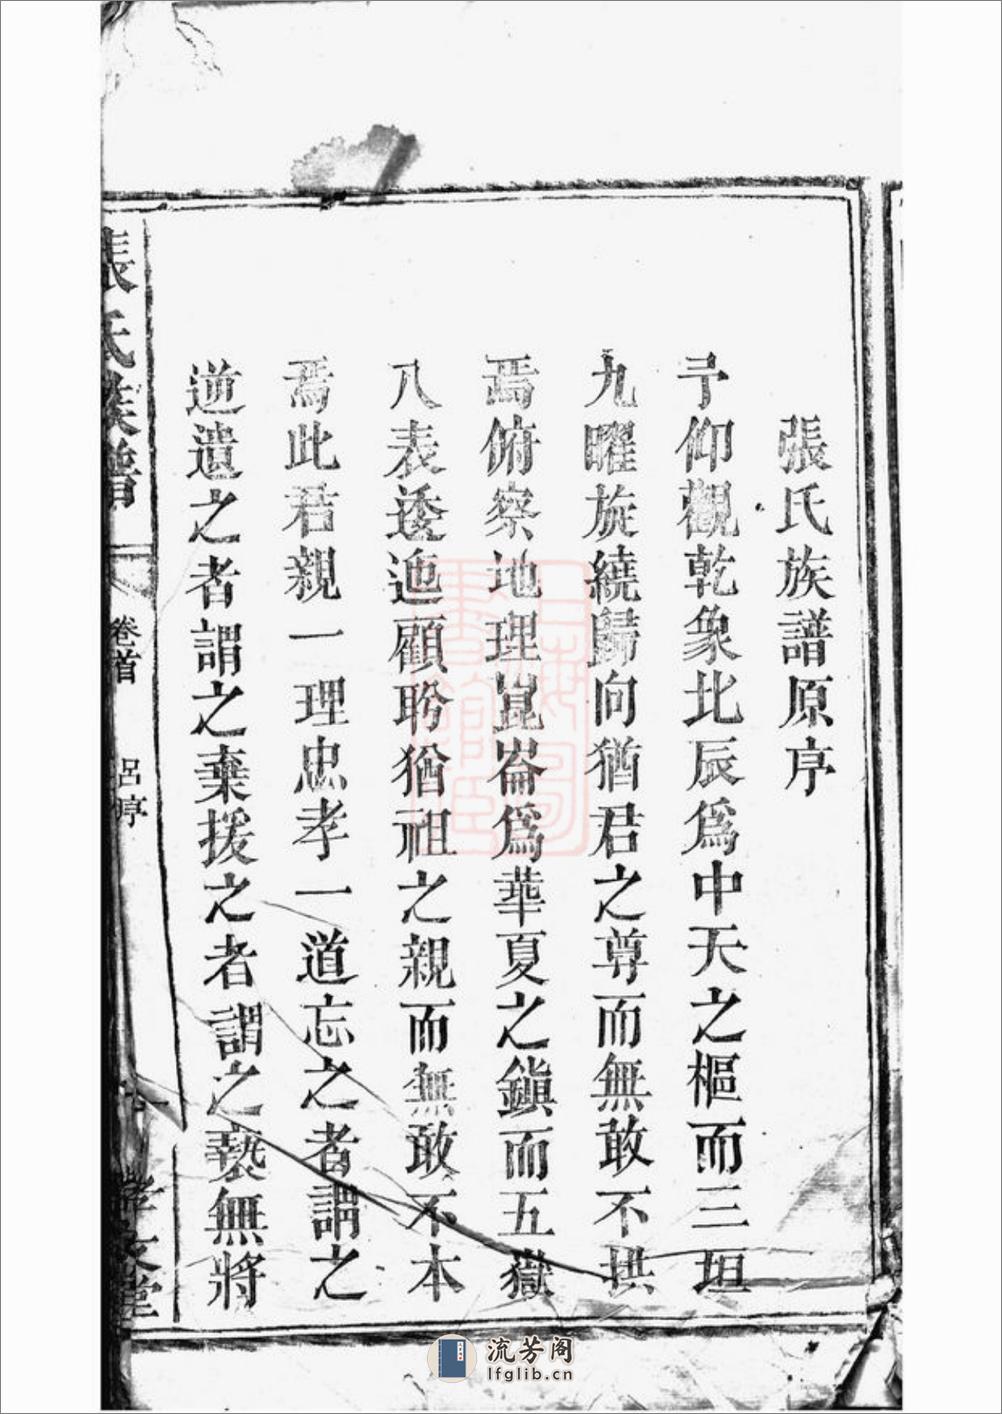 張氏族譜原序
予仰觀乾象北辰爲中天之樞而三垣
九曜旋繞歸向猶君之尊而無敢不拱
焉俯察地理崑崙爲華夏之鎭而五嶽
八表逶迤顧盻猶祖之親而無敢不本
焉此君親一理忠孝一道忘之者謂之
逆遺之者謂之棄援之者謂之褻無將
張氏族譜
卷首
呂序
一
文堂
流芳阁
lfglib.cn